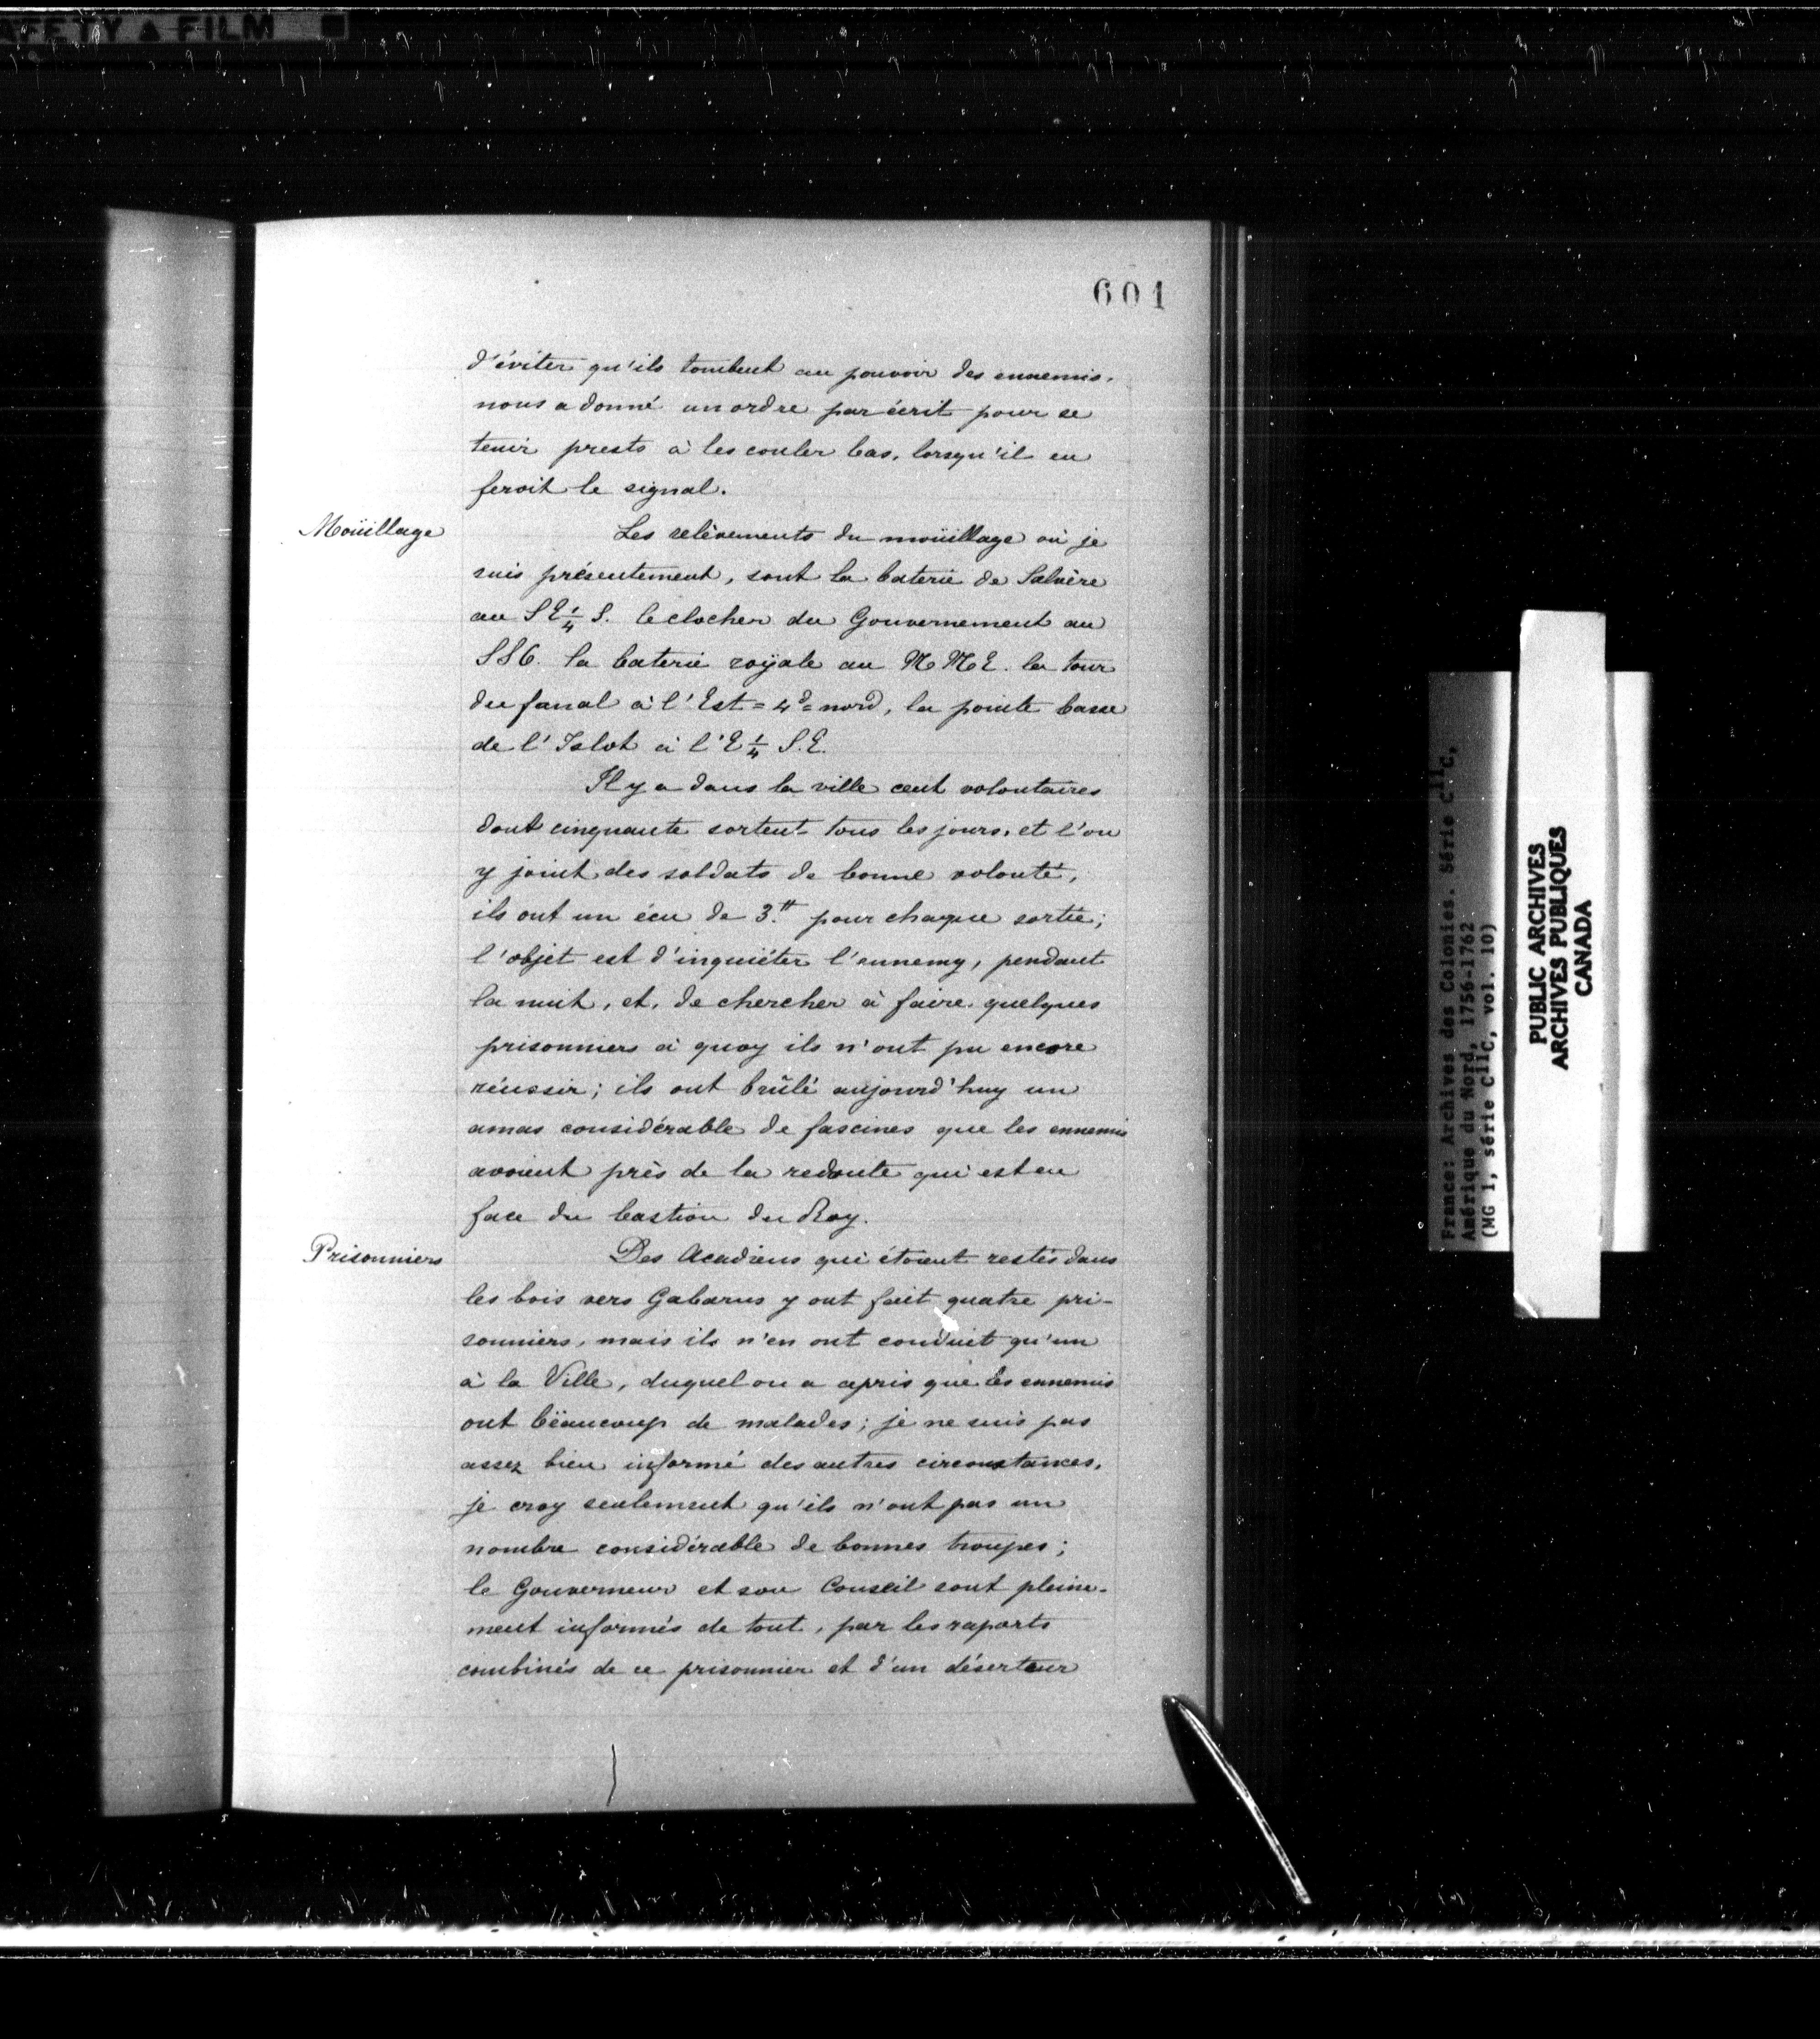 SAFETY FILM
601
d'éviter qu'ils tombent au pouvoir des ennemis.
nous a donné un ordre par écrit pour se
tenir prests à les couler bas, lorsqu'il en
feroit le signal.
Moüillage
Les relèvements du moüillage où je
suis présentement, sont la baterie de Salvère
au SE 1/4 S. le clocher du Gouvernement au
SS6. la baterie roÿale au NNE. la tour
du fanal à l'Est = 4d = nord, la pointe basse
de l'Islot à l'E 1/4 S.E.
Il y a dans la ville cent volontaires
dont cinquante sortent tous les jours, et l'on
y joint des soldats de bonne volonté,
ils ont un écu de 3.tt pour chaque sortie;
l'objet est d'inquiéter l'ennemy, pendant
la nuit, et, de chercher à faire quelques
prisonniers à quoy ils n'ont pu encore
réussir; ils ont brûlé aujourd'huy un
amas considérable de fascines que les ennemis
avoient près de la redoute qui est en
face du bastion du Roy.
Prisonniers
Des Acadiens qui étoient restés dans
les bois vers Gabarus y ont fait quatre pri-
sonniers, mais ils n'en ont conduit qu'un
à la Ville, duquel on a apris que les ennemis
ont bëaucoup de malades; je ne suis pas
assez bien informé des autres circonstances,
je croy seulement qu'ils n'ont pas un
nombre considérable de bonnes troupes;
le Gouverneur et son Conseil sont pleine-
ment informés de tout, par les raports
combinés de ce prisonnier et d'un déserteur
France: Archives des Colonies. Série C11C,
Amérique du Nord, 1756-1762
(MG 1, série C11C, vol. 10)
PUBLIC ARCHIVES
ARCHIVES PUBLIQUES
CANADA